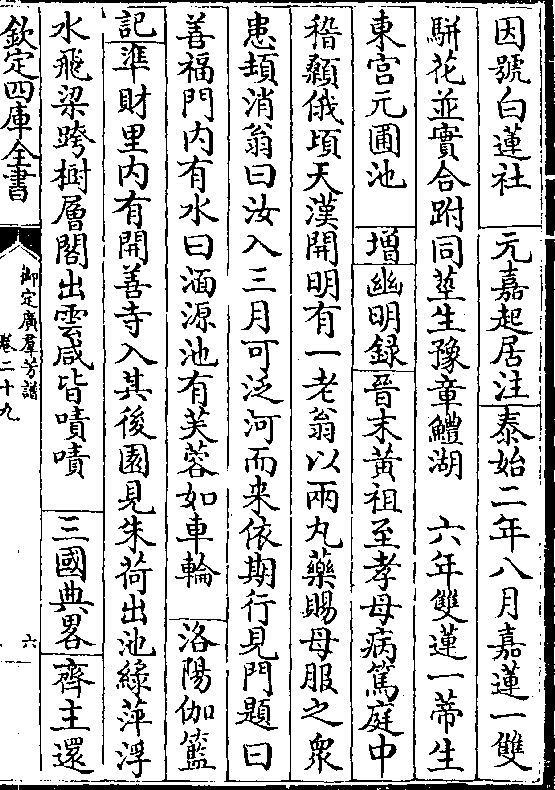 因號白蓮社　元嘉起居注泰始二年八月嘉蓮一雙
駢花並實合跗同莖生豫章鱧湖　六年雙蓮一蒂生
東宮元圃池　增幽明録晉末黃祖至孝母病篤庭中
稽顙俄頃天漢開明有一老翁以兩丸藥賜母服之衆
患頓消翁曰汝入三月可泛河而来依期行見門題曰
善福門内有水曰湎源池有芙蓉如車輪　洛陽伽籃
記準財里内有開善寺入其後園見朱荷出池緑萍浮
水飛梁跨樹層閣出雲咸皆嘖嘖　三國典畧齊主還
欽定四庫全書
御定廣羣芳譜
卷二十九
六